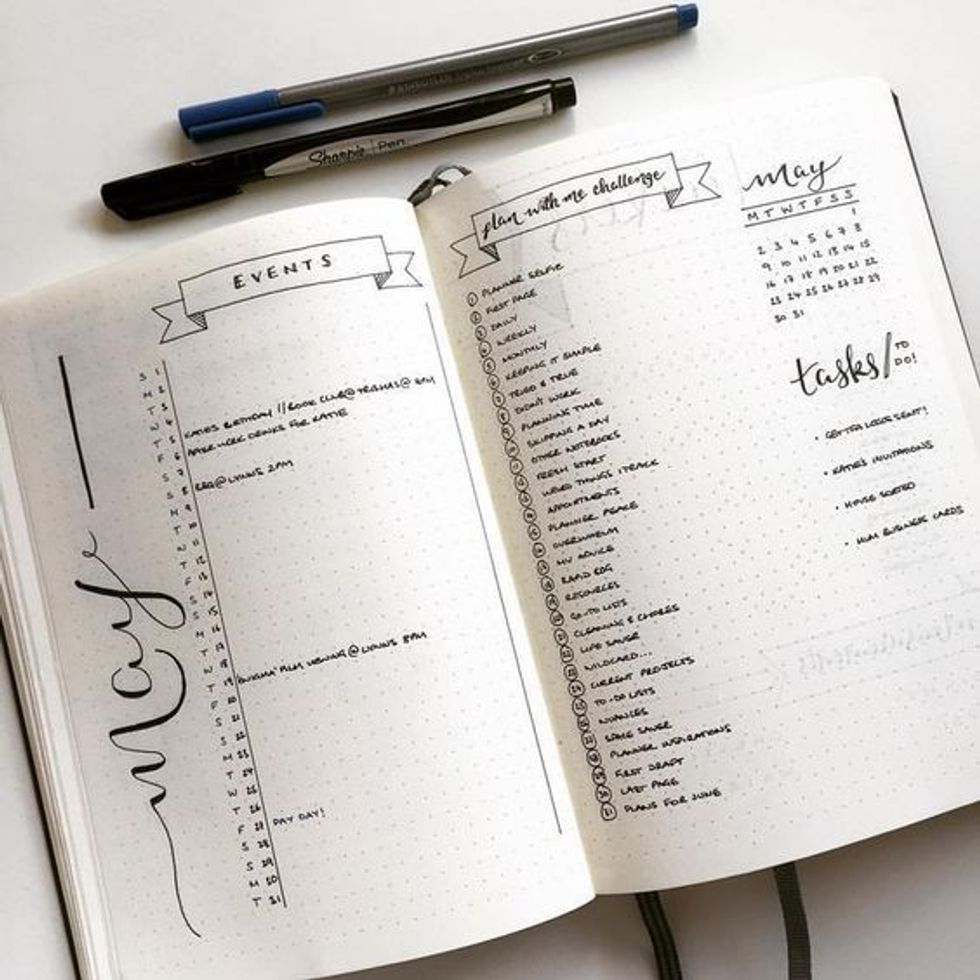 Sharpie Pen
EVENTS
May
S 1
M 2
T 3
W 4
T 5 KATIE'S BIRTHDAY // BOOK CLUB @ TRISHAS @ 8PM
F 6 AFTER WORK DRINKS FOR KATIE
S 7
S 8 BBQ @ LYNNS 2PM
M 9
T 10
W 11
T 12
F 13
S 14
S 15
M 16
T 17
W 18
T 19 FILM VIEWING @ LYNNS 8PM
F 20
S 21
S 22
M 23
T 24
W 25
T 26
F 27 PAY DAY!
S 28
S 29
M 30
T 31
plan with me challenge
1 PLANNER SELFIE
2 FIRST PAGE
3 DAILY
4 WEEKLY
5 MONTHLY
6 KEEPING IT SIMPLE
7 TRIED & TRUE
8 DIDN'T WORK
9 PLANNING TIME
10 SKIPPING A DAY
11 OTHER NOTEBOOKS
12 FRESH START
13 WEIRD THINGS I TRACK
14 APPOINTMENTS
15 PLANNER PEACE
16 OVERWHELM
17 MY ADVICE
18 RAPID LOG
19 RESOURCES
20 GO-TO LISTS
21 CLEANING & CHORES
22 LIFE SAVER
23 WILDCARD...
24 CURRENT PROJECTS
25 TO-DO LISTS
26 NUANCES
27 SPACE SAVER
28 PLANNER INSPIRATIONS
29 FIRST DRAFT
30 LAST PAGE
31 PLANS FOR JUNE
May
M T W T F S S
1
2 3 4 5 6 7 8
9 10 11 12 13 14 15
16 17 18 19 20 21 22
23 24 25 26 27 28 29
30 31
tasks/TO DO!
• LOGO SENT!
• KATIE'S INVITATIONS
• HOUSE SORTED
• MUM BUSINESS CARDS